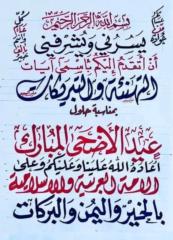 بسم الله الرحمن الرحيم
يسرني ويشرفني
أن أتقدم إليكم بأسمى آيات
التهنئة والتبريكات
بمناسبة حلول
عيد الأضحى المبارك
أعاده الله علينا وعليكم وعلى
الأمة العربية والإسلامية
بالخير واليمن والبركات